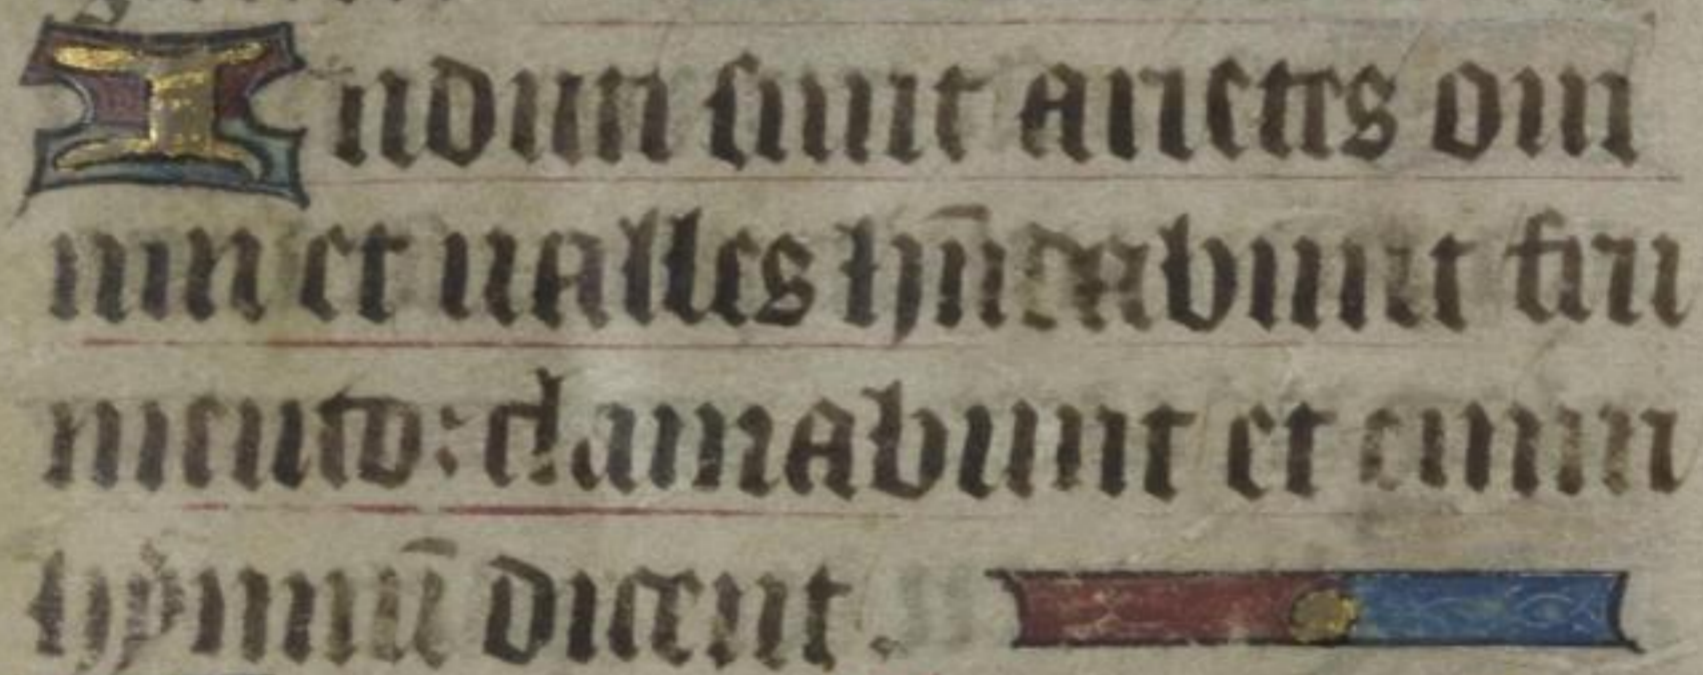 Induti sunt arietes oui
um et ualles hūdabunt fru
mento: clamabunt et enim
hymnū dicent.